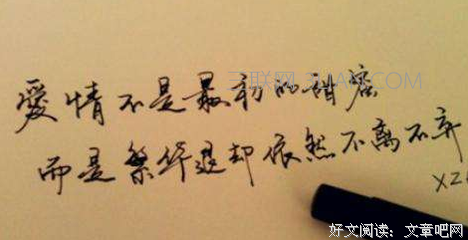 三联网 3LIAN.COM
愛情不是最初的甜蜜
而是繁华退却依然不离不弃
xz
好文阅读：文章吧网